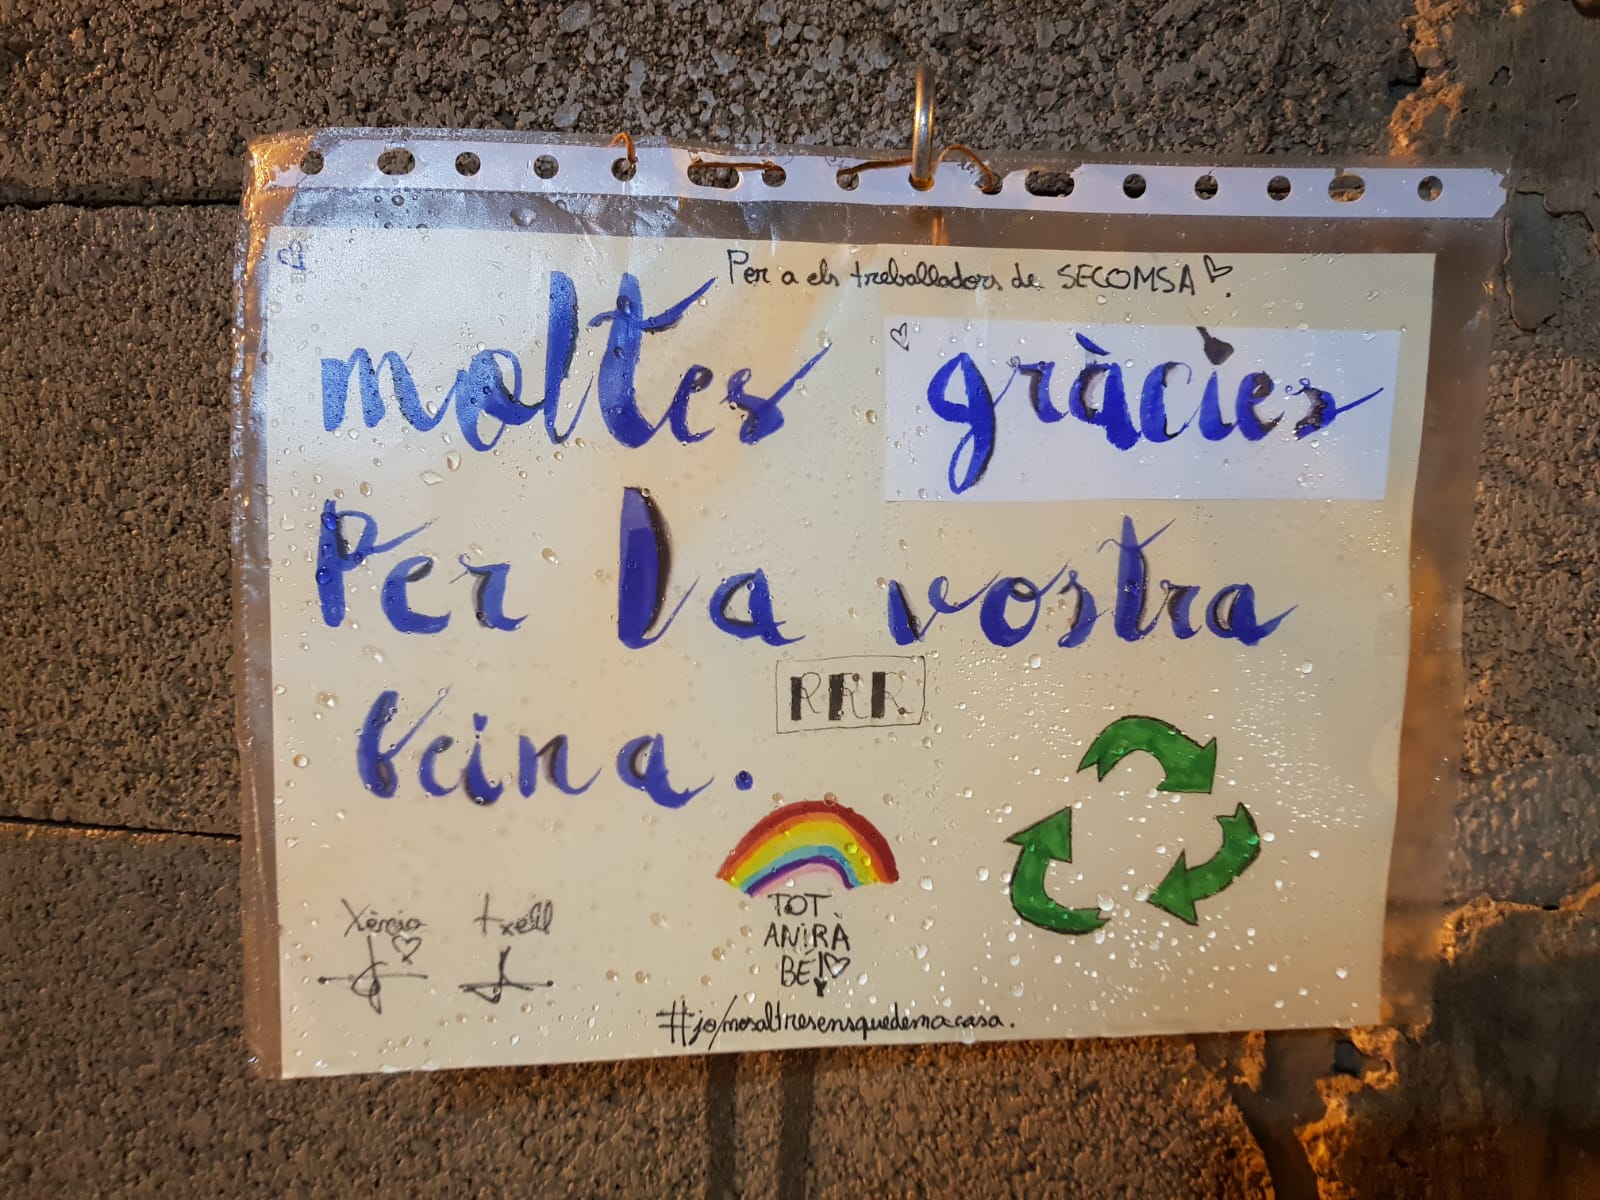 Per a els treballadors de SECOMSA
moltes gràcies
Per la vostra
feina.
RRR
TOT
ANIRÀ
BÉ!
Xènia txell
#jo/nosaltresensquedemacasa.